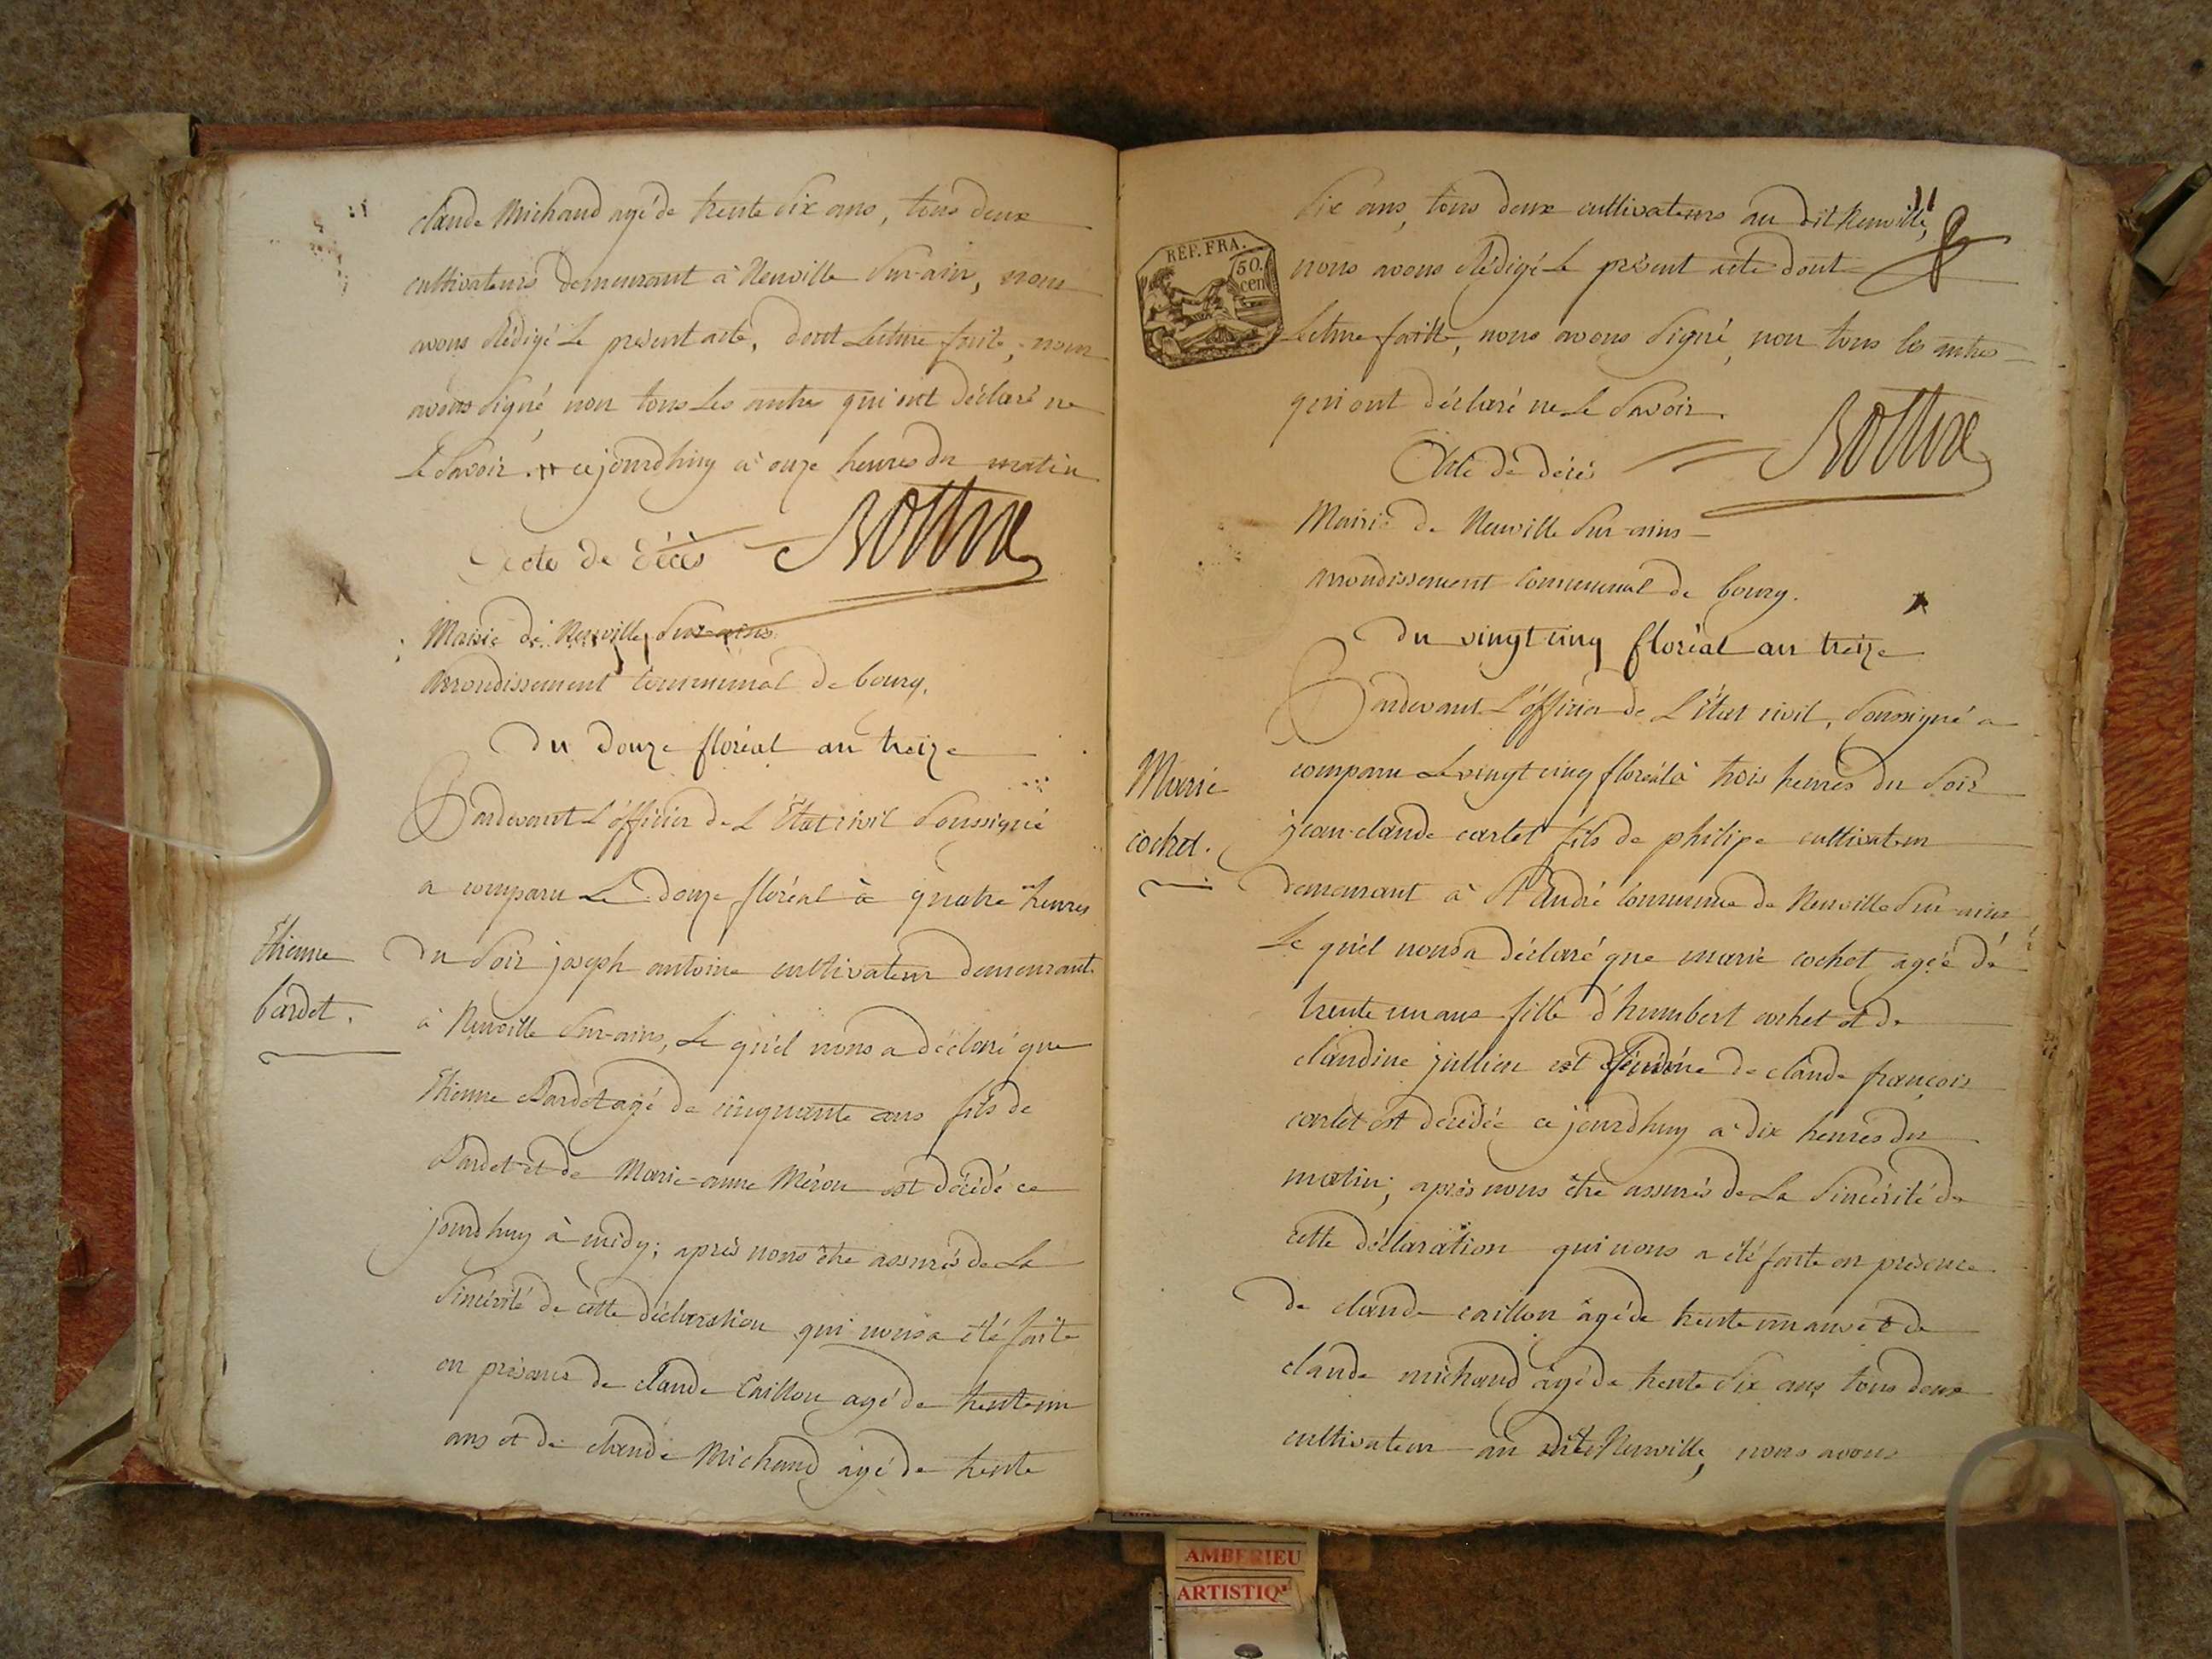 claude Michaud agé de trente six ans, tous deux
cultivateurs demeurant à Neuville Sur-ain, nous
avons Rédigé Le présent acte, dont Lecture faite, nous
avons signé, non tous Les autres qui ont déclaré ne
Le savoir. ce jourdhuy à onze heures du matin
Acte de décès
Mairie de Neuville Sur-ains
arrondissement communal de bourg.
du douze floréal an treize
Pardevant L'officier de L'État civil soussigné
a comparu Le douze floréal à quatre heures
Etienne
bardet.
du soir joseph antoine cultivateur demeurant
à Neuville Sur-ains, Le quel nous a déclaré que
Etienne Bardet agé de cinquante ans fils de
Bardet et de Marie-anne Méron est décédé ce
jourdhuy à midy; après nous être assurés de La
sincérité de cette déclaration qui nous a été faite
en présence de claude Caillon agé de trente un
ans et de claude Michaud agé de trente
six ans, tous deux cultivateurs au dit Neuville,
REP. FRA.
50. cen
nous avons Rédigé Le présent acte dont
Lecture faitte, nous avons signé, non tous les autres
qui ont déclaré ne Le savoir.
Acte de décès
Mairie de Neuville Sur-ains
arrondissement communal de bourg.
du vingt cinq floréal an treize
Pardevant L'officier de L'État civil, soussigné a
Marie
cochet.
comparu Le vingt cinq floréal à trois heures du soir
jean-claude carlet fils de philipe cultivateur
demeurant à St André commune de Neuville Sur-ains
Le quel nous a déclaré que marie cochet agée de
trente un ans fille d'humbert cochet et de
claudine jullien est femme de claude françois
carlet est décédée ce jourdhuy à dix heures du
matin; après nous être assurés de La sincérité de
cette déclaration qui nous a été faite en présence
de claude caillon agé de trente un ans et de
claude michaud agé de trente six ans, tous deux
cultivateur au dit Neuville, nous avons
AMBERIEU
ARTISTIQ